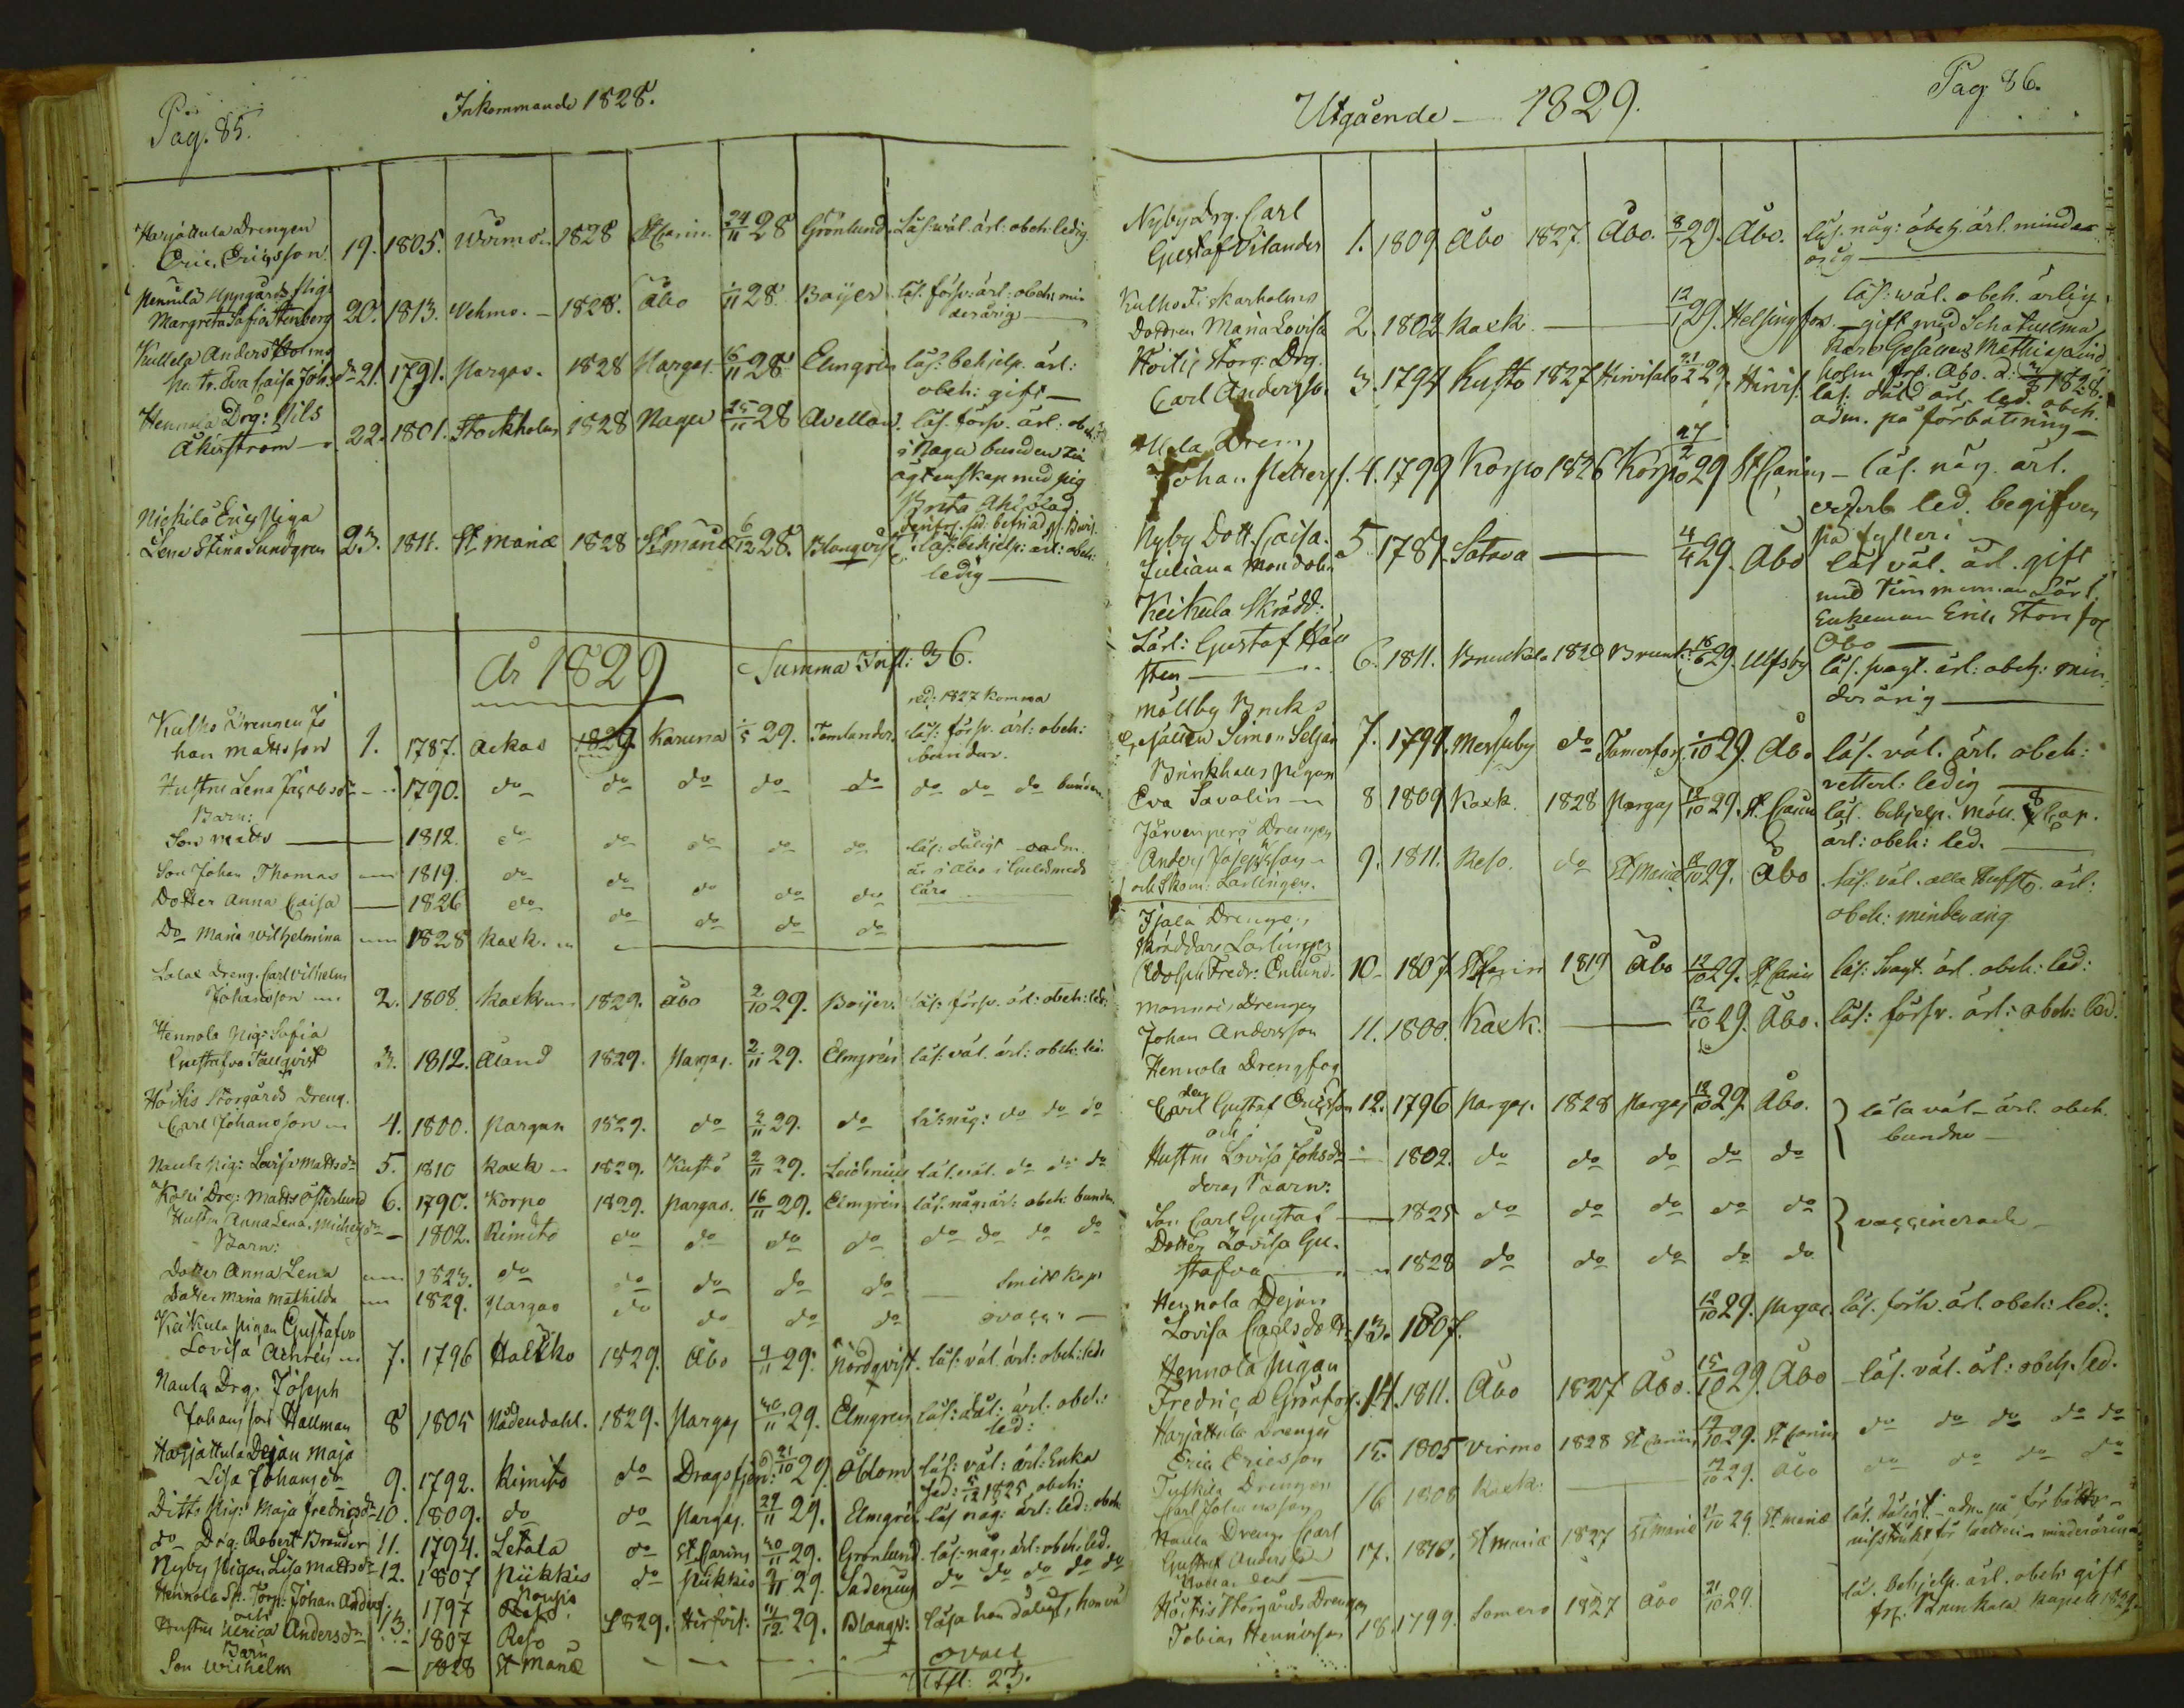 Pag. 85.
Inkommande 1828.
Harjattula Drengen
Eric Ericsson 19. 1805. Wirmo 1828 St Carin. 24/11 28 Grönlund Läs. wäl. ärl: obeh: ledig.
Uppgårds Pig.
Margreta Sofia Stenberg 20. 1813. Wehmo. 1828. Åbo 1/11 28 Boijer. läs. försv: ärl: obeh: min
derårig
Kullela Anders Holms
Eva Caisa Joh. dr 21. 1791. Pargas. 1828 Pargas 16/11 28 Elmgren läs: behjelp. ärl:
obeh: gift
Hennola Drg: Nils
Åkerström 22. 1801. Stockholm 1828 Nagu 25/11 28 Avellan. läs. försv. ärl: obeh:
i Nagu bunden
ägtenskap med pig
Brita
Nickilä Erics Piga
Lena Stina Sundgren 23. 1811. St Mariæ 1828 St Mariæ 6/12 28. Blanqvist läs: behjelp: ärl: obeh:
ledig
År 1829 Summa Infl: 36.
red: 1827 komma
Kulho Drengen Jo
han Mattsson 1. 1787. Ackas 1829. Karuna 1/5 29. Tamlander. läs: försv. ärl: obeh:
bunden.
Hustru Lena Jacobsdr 1790. do do do do do do do bunden
Barn:
Son Matts 1812. do do do do do läs: dåligt adm.
är i Åbo i Guldsmeds
lära
Son Johan Thomas 1819. do do do do do
Dotter Anna Caisa 1826 do do do do do
Do Maria Wilhelmina 1828 Kaxk.
Dreng. Carl Wilhelm
Johansson 2. 1808. Kaxk. 1829. Åbo 2/10 29. Boijer. läs. försv. ärl: obeh: led:
Hennola Pig: Sofia
Gustafva Tallqvist 3. 1812. Åland 1829. Pargas. 2/11 29. Elmgrén läs: väl. ärl: obeh: led.
Höitis Storgårds Dreng.
Carl Johansson 4. 1800. Pargas 1829. do 2/11 29. do läs: någ: do do do
Naula Pig: Lovisa Mattsdr 5. 1810 Kaxk 1829. Kustö 2/11 29. läs. väl. do do do
Drg: Matts Österlund 6. 1790. Korpo 1829. Pargas. 16/11 29. Elmgrén läs. någ: ärl: obeh: bunden.
Hustru Anna Lena Michelsdr 1802. Kimito do do do do do do do do
Barn:
Dotter Anna Lena 1823. do do do do do Smitt kop:
Dotter Maria Mathilda 1829. Pargas do do do do ovacc:
Keikula Pigan Gustafva
Lovisa Achrén 7. 1796 Halikko 1829. Åbo 9/11 29. Nordqvist. läs: väl. ärl: obeh: led:
Naula Drg. Joseph
Johansson Hallman 8 1805 Nådendahl. 1829. Pargas 30/11 29. Elmgren läs: ärl: obeh:
led:
Harjattula Dejan Maja
Lisa Johansdr 9. 1792. Kimito do Dragsfjerd: 21/10 29. Öblom läs: väl: ärl: Enka
sed: 5/12 1825, obeh:
Ditto Pig: Maja Fredricsdr 10. 1809. do do Pargas. 29/11 29. Elmgrén läs någ: ärl: led: obeh:
do Drg. Robert Brander 11. 1794. Letala do St Carins 30/11 29. Grönlund. läs: någ: ärl: obeh: led.
Nyby Pigan Lisa Mattsdr 12. 1807 Piikkis do Piikkis 2/11 29. Sadenius do do do do do
Hennola Johan Anders. 1797 Nousis
och 13. 1829. Hirfvis: 11/12 29. Blanqv: läsa han dåligt, hon väl
Hustru Ulrica Andersdr 1807 Reso
Barn
Son Wilhelm 1828 St Mariæ ovacc
Utfl: 23.
Utgående 1829.
Pag. 86.
Nyby Drg. Carl
Gustaf Vilander 1. 1809 Åbo 1827. Åbo. 8/1 29. Åbo. läs. någ: obeh. ärl. minder
årig
Kulho Fiskarholms
Dottren Maria Lovisa 2. 1802 Kaxk. 12/1 29. Helsingfors. läs: wäl. obeh. ärlig
gift med
Gesällen
Åbo. 1828.
Höitis Storg: Drg.
Carl Anderss. 3. 1794 Kusto 1827 Hirvisalo 21/2 29. Hirvis. läs: ärl. led. obeh.
adm. på förbättring
Dreng
Johan Petterss. 4. 1799 Korpo 1826 Korpo 27/2 29 St Carins läs. någ. ärl.
led. begifven
på fylleri
Nyby Dott. Caisa
Juliana 5 1781. Satava 4/4 29. Åbo läs väl. ärl. gift
med Timmerman
Enkeman Eric
Åbo
Keikula Skrädd:
Lärl: Gustaf Häll
sten 6. 1811. Brunkala 1820 Brunk: 18/6 29. Ulfsby läs. svagt. ärl: obeh: min
derårig
Möllby Bruks
Gesällen Simon Seljan 7. 1794. Messuby do Tamerfors. 1/10 29. Åbo läs. väl. ärl. obeh:
ledig
Brinkhalls Pigan
Eva Savolin 8 1809 Kaxk. 1828 Pargas 12/10 29. St Carins läs. behjelp.
ärl: obeh: led.
Järvenperä Drengen
Anders Josephsson 9. 1811. Reso. do St Mariæ 12/10 29. Åbo. läs. väl. alla Hufst. ärl:
och Skom: Lärlingen. obeh: minderårig
Drengen,
Skräddare Lärlingen
Adolph Fredr: Enlund. 10 1807 St Carin 1819 Åbo 12/10 29. St Carins läs: svagt. ärl. obeh: led:
Monnois Drengen
Johan Andersson 11. 1800. Kaxk. 12/10 29. Åbo. läs: försv. ärl: obeh: led.
Hennola Drengfog
den
Carl Gustaf Ericsson 12. 1796 Pargas. 1828 Pargas 12/10 29. Åbo. läsa väl. ärl. obeh.
bundne
och
Hustru Lovisa Johsdr 1802. do do do do do
deras Barn:
Son Carl Gustaf 1825 do do do do do vaccinerade
Dotter Lovisa Gu.
stafva 1828 do do do do do
Hennola Dejan
Lovisa Carlsdotr 13. 1807. 12/10 29. Pargas läs. försv. ärl. obeh: led:
Hennola Pigan
Fredrica Grönfors. 14. 1811. Åbo 1827 Åbo. 15/10 29. Åbo läs. väl. ärl: obeh. led.
Harjattula Drengen
Eric Ericsson 15. 1805 Virmo 1828 St Carins 19/10 29. St Carins do do do do do
Drengen
Carl Johansson 16 1808 Kaxk: 19/10 29. Åbo do do do do
Naula Dreng Carl
Gustaf Andersson 17. 1810. St Mariæ 1827 St Mariæ 21/10 29. St Mariæ läs. dåligt. adm. på förbättr
Höitis Storgårds Drengen
Tobias Henricsson 18. 1799. Somero 1827 Åbo 21/10 29. läs. behjelp. ärl. obeh: gift
Brunkala Kapell 1829.